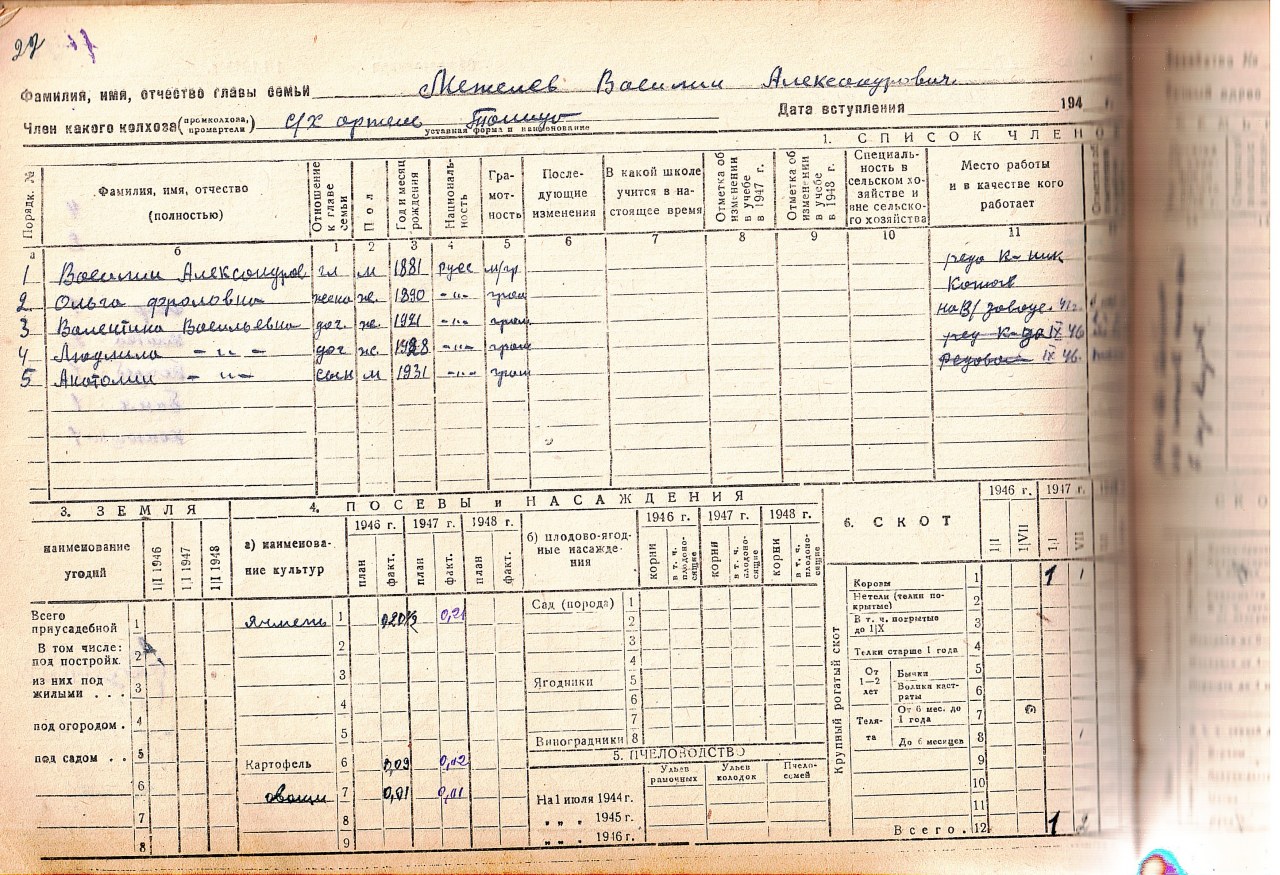 22
Фамилия, имя, отчество главы семьи Межелев Василии Александрович
Член какого колхоза (промколхоза, промартели) с/х артель
уставная форма и наименование
Дата вступления 194 г.
1. СПИСОК ЧЛЕНО
Порядк. № Фамилия, имя, отчество (полностью) Отношение к главе семьи Пол Год и месяц рождения Националь-ность Гра-мот-ность После-дующие изменения В какой школе учится в на-стоящее время Отметка об изменении в учебе в 1947 г. Отметка об изменении в учебе в 1948 г. Специаль-ность в сельском хо-зяйстве и вне сельско-го хозяйства Место работы и в качестве кого работает
а б 1 2 3 4 5 6 7 8 9 10 11
1 Василии Александров гл м 1881 русс м/гр редо к-ник
2 Ольга Фроловна жена же. 1890 -"- грам
3 Валентина Васильевна доч. же. 1921 -"- грам на В/ заводе. 41г.
4 Людмила -"- доч же. 1928 -"- грам IX 46
5 Анатолии -"- сын м 1931 -"- грам IX 46.
3. ЗЕМЛЯ
наименование угодий 1|I 1946 1|I 1947 1|I 1948
Всего приусадебной 1
В том числе: под постройк. 2
из них под жилыми . . . 3
под огородом . 4
под садом . . 5
6
7
8
4. ПОСЕВЫ и НАСАЖДЕНИЯ
а) наименова-ние культур 1946 г. 1947 г. 1948 г.
план факт. план факт. план факт.
Ячмень 1 0,21
2
3
4
5
Картофель 6 0,09 0,12
овощи 7 0,01 0,01
8
9
б) плодово-ягод-ные насажде-ния 1946 г. 1947 г. 1948 г.
корни в т. ч. плодоно-сящие корни в т. ч. плодоно-сящие корни в т. ч. плодоно-сящие
Сад (порода) 1
2
3
4
Ягодники 5
6
7
Виноградники 8
5. ПЧЕЛОВОДСТВО
Ульев рамочных Ульев колодок Пчело-семей
На 1 июля 1944 г.
" " " 1945 г.
" " " 1946 г.
6. СКОТ
1946 г. 1947 г.
1|I 1|VII 1|I VII
Крупный рогатый скот
Коровы 1 1 1
Нетели (телки по-крытые) 2
В т. ч. покрытые до 1|X 3
Телки старше 1 года 4
От 1—2 лет Бычки 5
Волики каст-раты 6
Теля-та От 6 мес. до 1 года 7
До 6 месяцев 8 1
9
10
11
Всего. 12 1 2